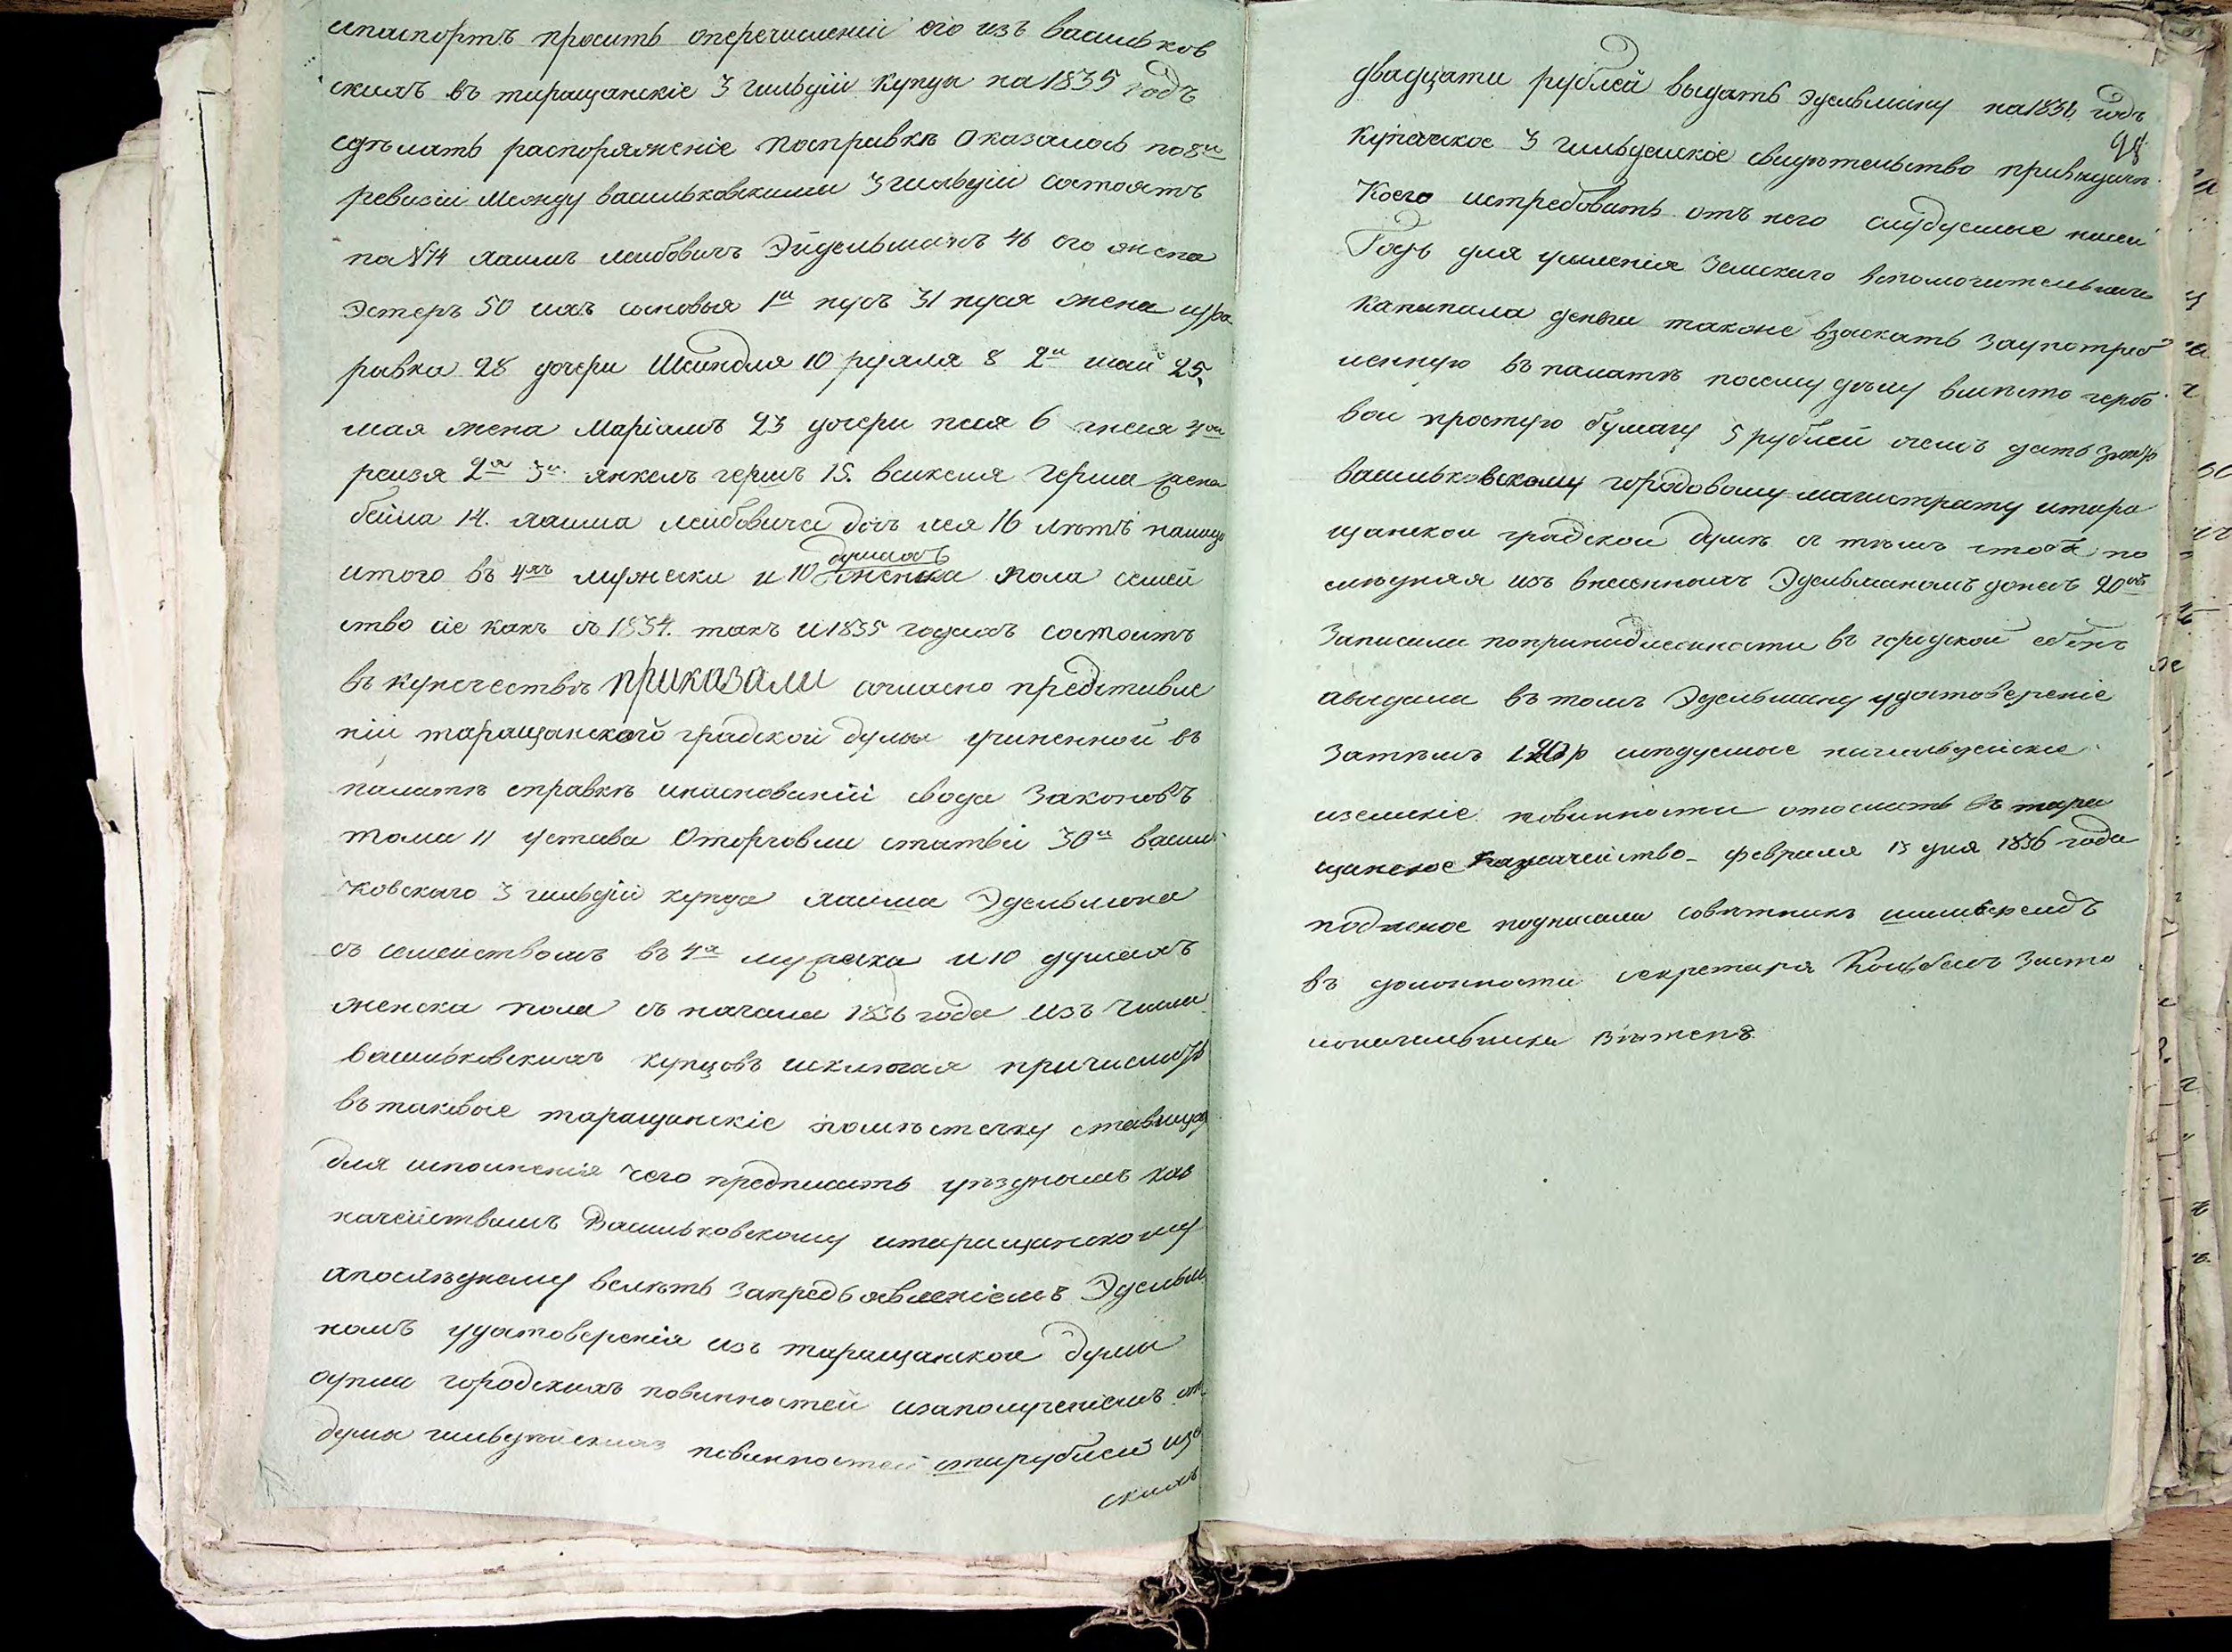 ипаспортъ просить оперечисленіи его изъ васильков
скихъ въ таращанскіе 3 гильдіи купцы на 1835 годъ
сдѣлать распоряженіе посправкѣ Оказалось по 8й
ревизіи Между васильковскими 3 гильдіи состоятъ
на №74 хаимъ лейбовичъ Эйдельманъ 46 его жена
Эстеръ 50 ихъ сыновья 1й нусъ 31 нуся жена
ривка 28 дочери Шейндля 10 рухля 8 2й май 25
мая жена Маріамъ 23 дочери песя 6
рейзя 2а 3й янкель гершъ 15. янкеля герша жена
бейла 14. хаима лейбовича дочь лея 16 лѣтъ налицо
итого въ 4хъ мужеска и 10 душахъ женска пола семей
ство сіе какъ въ 1834. такъ и 1835 годахъ состоитъ
въ купечествѣ приказали согласно представле
нію таращанской градской думы учиненной въ
палатѣ справкѣ инаоснованіи свода Законовъ
тома 11 устава Оторговли статьи 30й василь
ковскаго 3 гильдіи купца хаима Эдельмана
съ семействомъ въ 4х мужеска и 10 душахъ
женска пола съ начала 1836 года изъ числа
васильковскихъ купцовъ исключая причислить
въ таковые таращанскіе помѣстечку ставищамъ
для исполненія чего предписать уѣзднымъ каз
начействамъ Васильковскому итаращанскому
апослѣднему велѣть запредъявленіемъ Эдельма
номъ удостоверенія изъ таращанской думы
оуплате городскихъ повинностей изаполученіемъ от
думы гильдейскихъ повинностей старублей изе
скихъ
двадцати рублей выдать Эдельману на 1836 годъ
98
Купеческое 3 гильдейское свидѣтельство привыдачѣ
Коего истребовать отъ него слѣдуемые насей
Годъ для усиленія Земскаго вспомогательнаго
капитала деньги также взыскать заупотреб
ленную въ палатѣ посему дѣлу вмѣсто гербо
вой простую бумагу 5 рублей очемъ дать знать
васильковскому городовому магистрату итара
щанской градской думѣ съ тѣмъ чтобы по
слѣдняя изъ внесенныхъ Эдельманомъ денегъ 20ть
записала попринадлежности въ городской сборъ
авыдала въ томъ Эдельману удостовѣреніе
затѣмъ 120р слѣдуемые нагильдейскіе
иземскіе повинности отослать въ тара
щанское казначейство февраля 13 дня 1836 года
подленое подписали совѣтникъ
въ должности секретаря засто
лоначальника